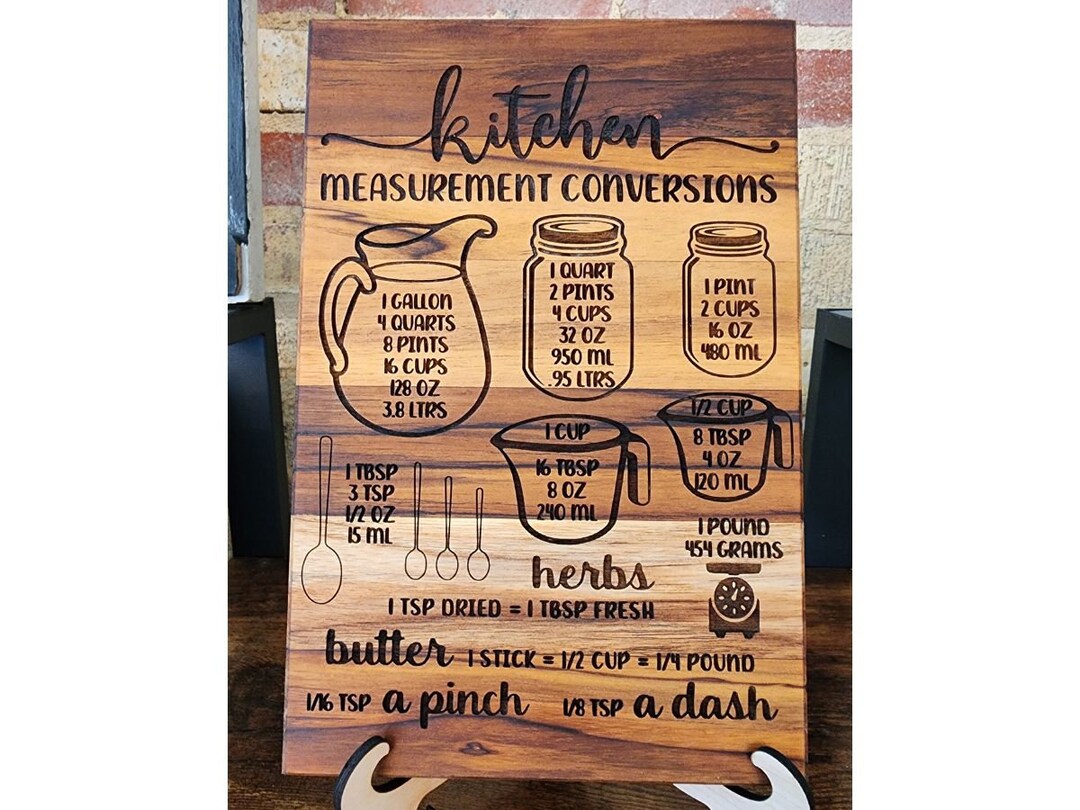 kitchen
MEASUREMENT CONVERSIONS
1 GALLON
4 QUARTS
8 PINTS
16 CUPS
128 OZ
3.8 LTRS
1 QUART
2 PINTS
4 CUPS
32 OZ
950 ML
.95 LTRS
1 PINT
2 CUPS
16 OZ
480 ML
1 TBSP
3 TSP
1/2 OZ
15 ML
1 CUP
16 TBSP
8 OZ
240 ML
1/2 CUP
8 TBSP
4 OZ
120 ML
1 POUND
454 GRAMS
herbs
1 TSP DRIED = 1 TBSP FRESH
butter 1 STICK = 1/2 CUP = 1/4 POUND
1/16 TSP a pinch 1/8 TSP a dash